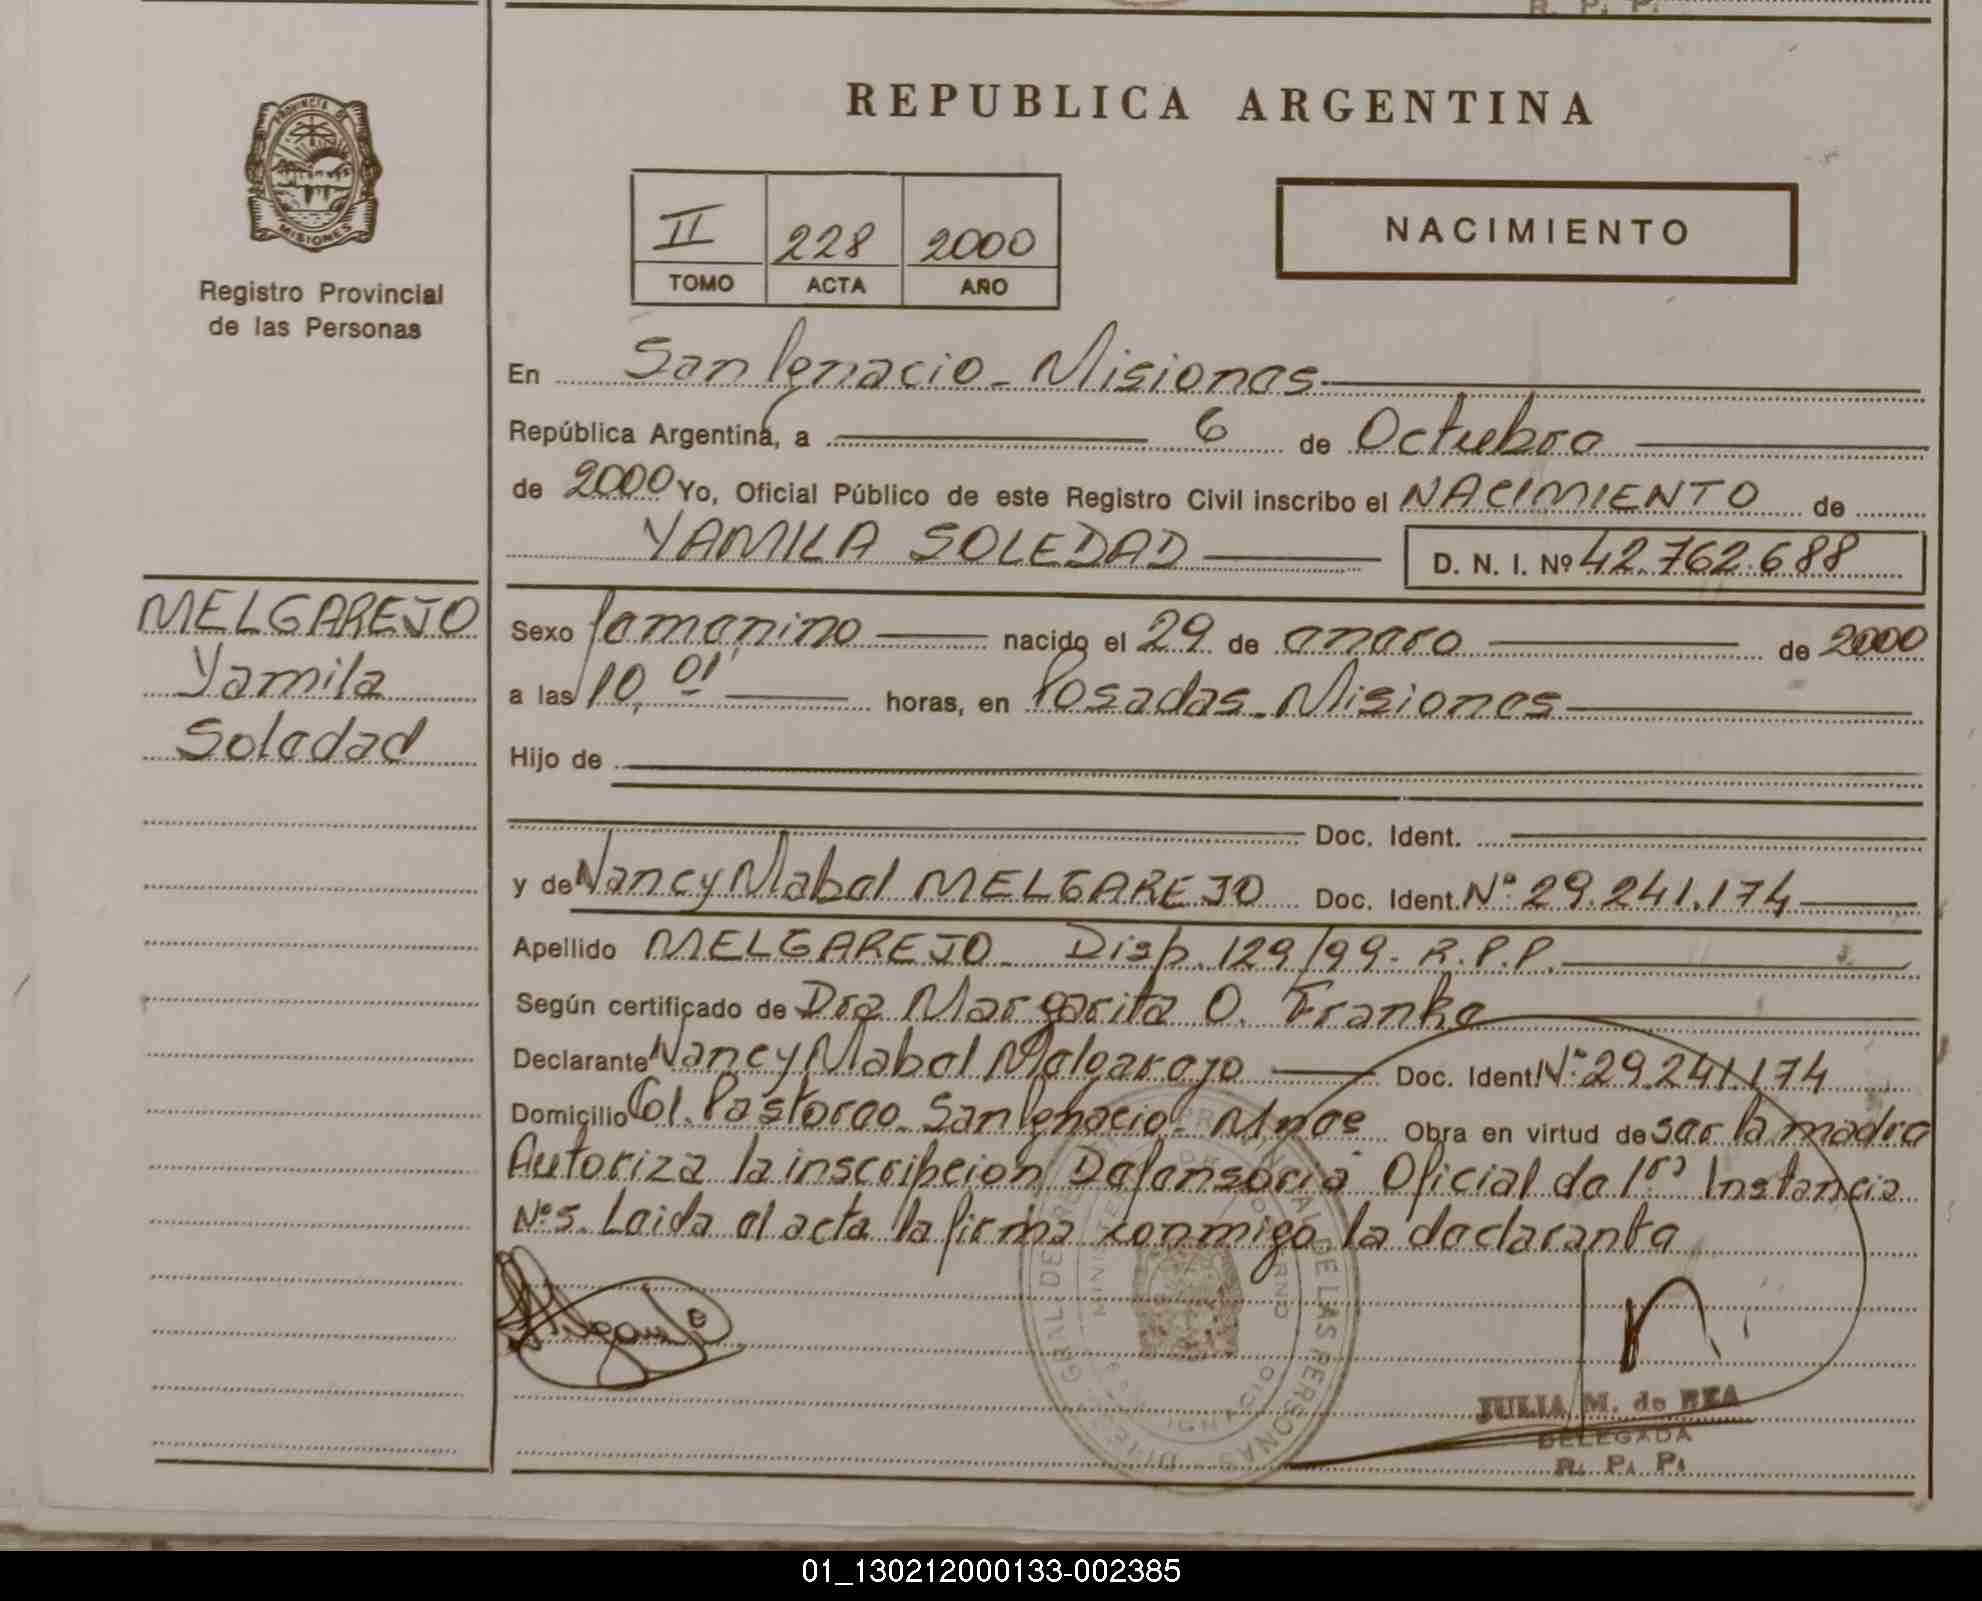 R. P. P.
PROVINCIA DE
MISIONES
Registro Provincial
de las Personas
MELGAREJO
Yamila
Soledad
REPUBLICA ARGENTINA
II 228 2000
TOMO ACTA AÑO
NACIMIENTO
En San Ignacio - Misiones
República Argentina, a 6 de Octubre
de 2000 Yo, Oficial Público de este Registro Civil inscribo el NACIMIENTO de
YAMILA SOLEDAD D. N. I. Nº 42.762.688
Sexo femenino nacido el 29 de enero de 2000
a las 10,01' horas, en Posadas - Misiones
Hijo de
Doc. Ident.
y de Nancy Mabel MELGAREJO Doc. Ident. Nº 29.241.174
Apellido MELGAREJO - Disp. 129/99 - R.P.P.
Según certificado de Dra Margarita O. Franke
Declarante Nancy Mabel Melgarejo Doc. Ident. Nº 29.241.174
Domicilio Col. Pastoreo - San Ignacio - Mnes Obra en virtud de ser la madre
Autoriza la inscripcion Defensoria Oficial de 1ra Instancia
Nº 5. Leida el acta la firma conmigo la declarante
JULIA M. de REA
DELEGADA
R. P. P.
01_130212000133-002385